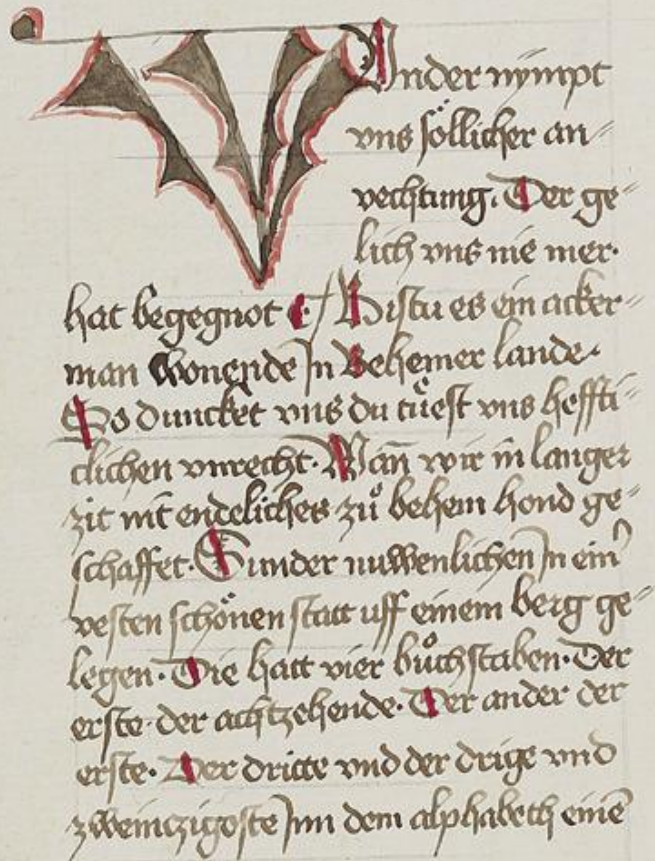 VUnder nympt
vns söllicher an⸗
vechtung. Der ge⸗
lich vns nie mer·
hat begegnot Bistu es ein acker⸗
man wonende Jn Behemer lande·
So duncket vns du tuͤest vns heffti⸗
clichen vnrecht· Wan̄ wir in langer
zit nit endeliches zuͦ behem hond ge⸗
schaffet· Sunder nuwenlichen Jn ein̄
vesten schönen statt uff einem berg ge⸗
legen· Die hatt vier buͦchstaben· Der
erste· der achtzehende· Der ander der
erste· Der dritte vnd der drige vnd
zweinczigoste Jnn dem alphabeth einē